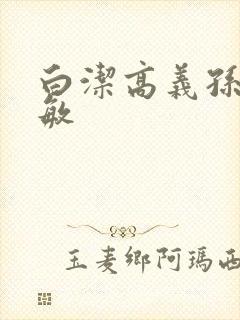 白潔高義孫
敏
玉麦鄉阿瑪西